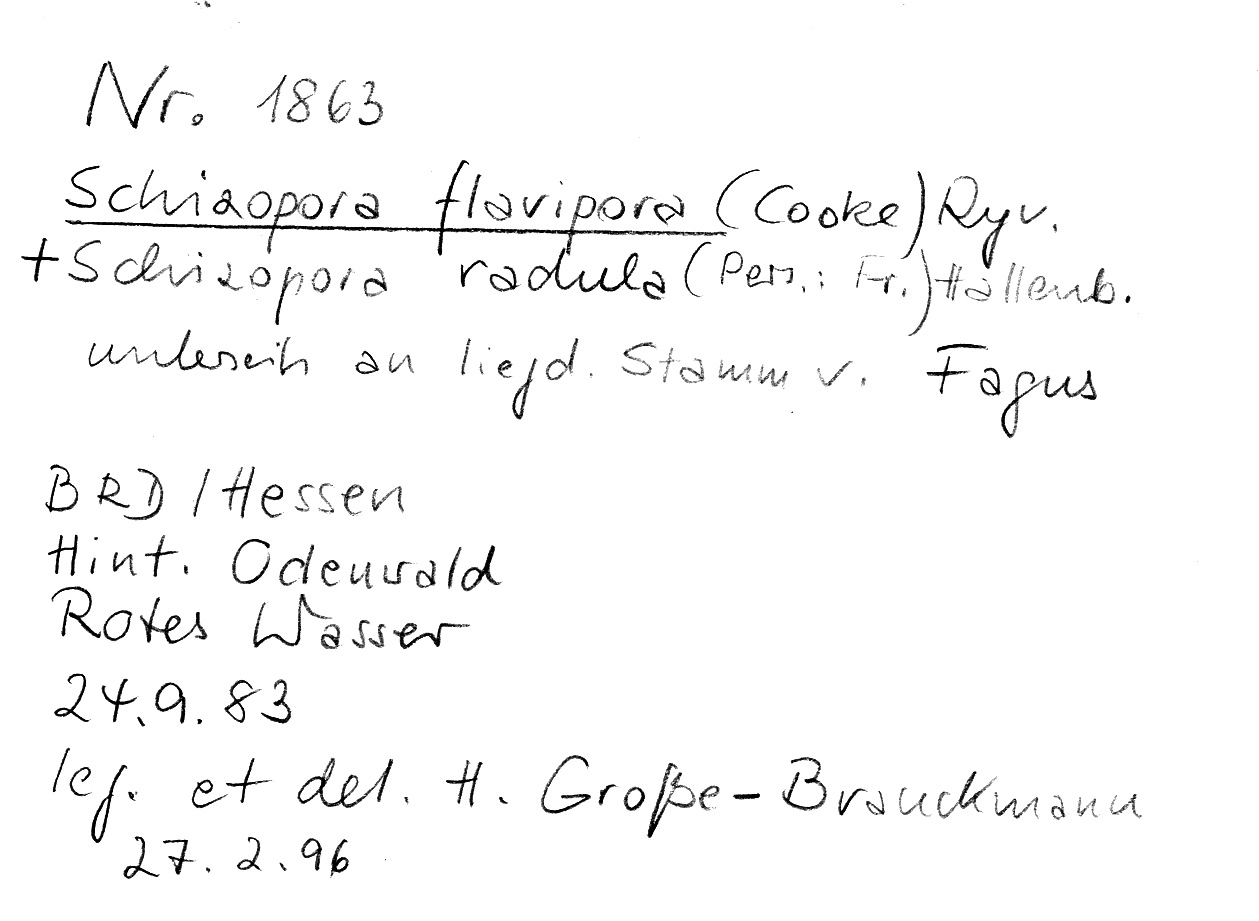 Nr. 1863
Schizopora flavipora (Cooke) Ryv.
+ Schizopora radula (Pers.: Fr.) Hallenb.
unterseits an liegd. Stamm v. Fagus
BRD / Hessen
Hint. Odenwald
Rotes Wasser
24.9.83
leg. et det. H. Große-Brauckmann
27.2.96